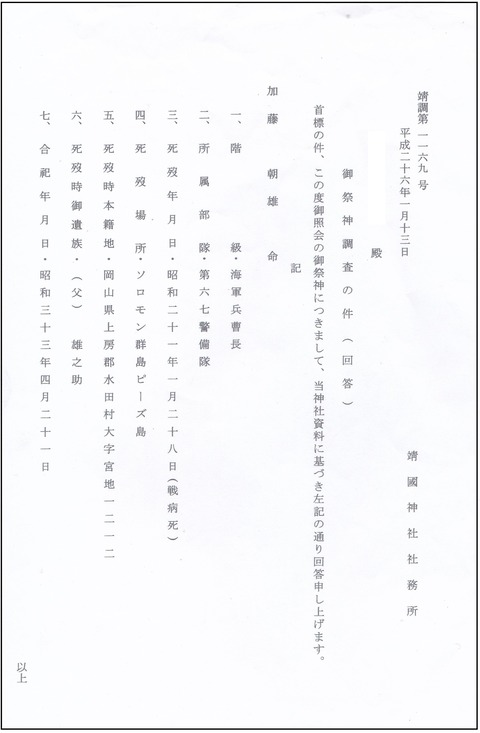 靖調第一一六九号
平成二十六年一月十三日
靖國神社社務所
殿
御祭神調査の件(回答)
首標の件、この度御照会の御祭神につきまして、当神社資料に基づき左記の通り回答申し上げます。
記
加藤朝雄命
一、階級・海軍兵曹長
二、所属部隊・第六七警備隊
三、死歿年月日・昭和二十一年一月二十八日(戦病死)
四、死歿場所・ソロモン群島ピーズ島
五、死歿時本籍地・岡山県上房郡水田村大字宮地一二一二
六、死歿時御遺族・(父) 雄之助
七、合祀年月日・昭和三十三年四月二十一日
以上